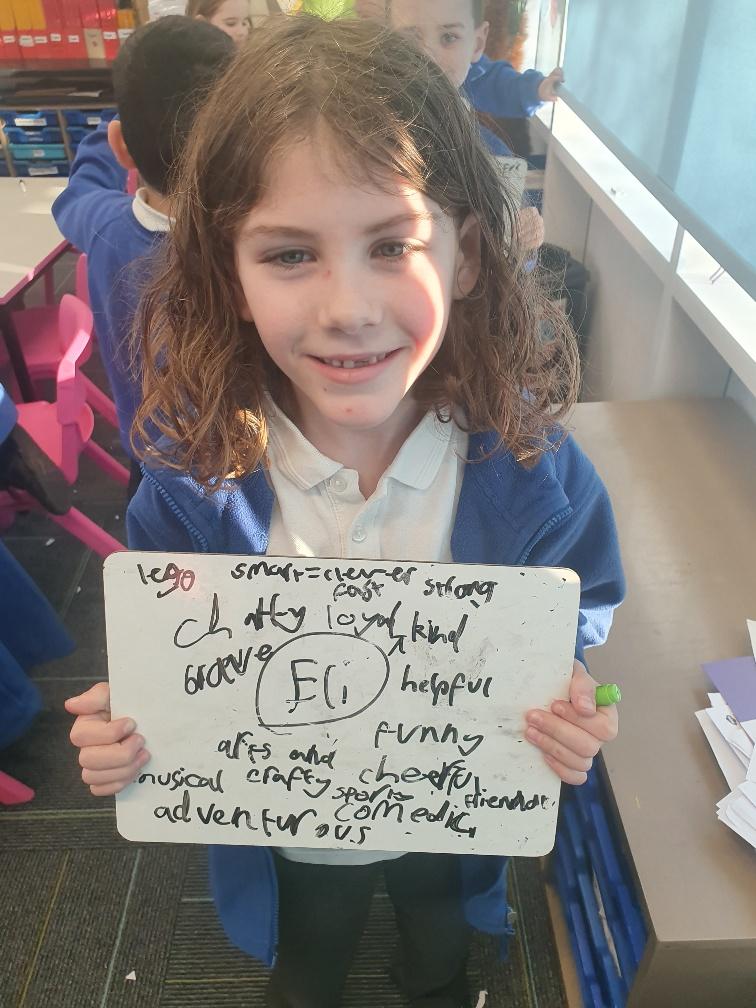 lego smart=clever
fast strong
chatty loyal kind
Eli
helpful
arts and funny
musical crafty cheerful
sporty friendly
adventurous comedic